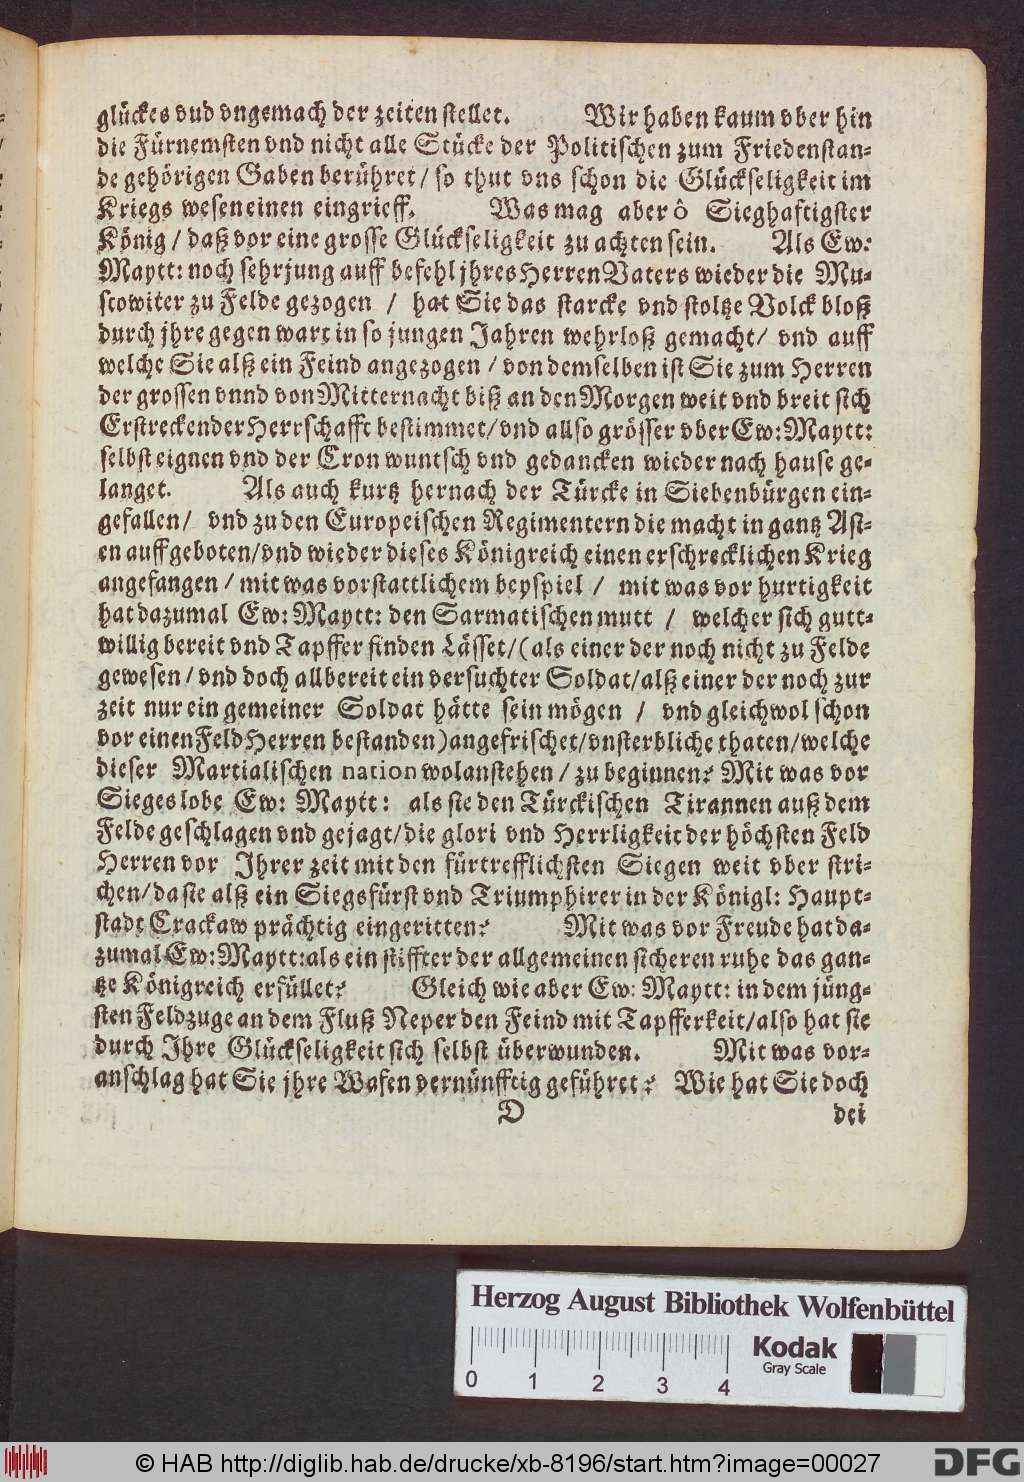 glückes vud vngemach der zeiten stellet. Wir haben kaum vber hin
die Fürnemsten vnd nicht alle Stücke der Politischen zum Friedenstan-
de gehörigen Gaben berühret / so thut vns schon die Glückseligkeit im
Kriegs wesen einen eingrieff. Was mag aber ô Sieghaftigster
König / daß vor eine grosse Glückseligkeit zu achten sein. Als Ew:
Maytt: noch sehr jung auff befehl jhres Herren Vaters wieder die Mu-
scowiter zu Felde gezogen / hat Sie das starcke vnd stoltze Volck bloß
durch jhre gegen wart in so jungen Jahren wehrloß gemacht / vnd auff
welche Sie alß ein Feind angezogen / von demselben ist Sie zum Herren
der grossen vnnd von Mitternacht biß an den Morgen weit vnd breit sich
Erstreckender Herrschafft bestimmet / vnd allso grösser vber Ew: Maytt:
selbst eignen vnd der Cron wuntsch vnd gedancken wieder nach hause ge-
langet. Als auch kurtz hernach der Türcke in Siebenbürgen ein-
gefallen / vnd zu den Europeischen Regimentern die macht in gantz Asi-
en auffgeboten / vnd wieder dieses Königreich einen erschrecklichen Krieg
angefangen / mit was vor stattlichem beyspiel / mit was vor hurtigkeit
hat dazumal Ew: Maytt: den Sarmatischen mutt / welcher sich gutt-
willig bereit vnd Tapffer finden Lässet / (als einer der noch nicht zu Felde
gewesen / vnd doch allbereit ein versuchter Soldat / alß einer der noch zur
zeit nur ein gemeiner Soldat hätte sein mögen / vnd gleichwol schon
vor einen Feld Herren bestanden) angefrischet / vnsterbliche thaten / welche
dieser Martialischen nation wolanstehen / zu beginnen? Mit was vor
Sieges lobe Ew: Maytt: als sie den Türckischen Tirannen auß dem
Felde geschlagen vnd gejagt / die glori vnd Herrligkeit der höchsten Feld
Herren vor Ihrer zeit mit den fürtrefflichsten Siegen weit vber stri-
chen / da sie alß ein Siegsfürst vnd Triumphirer in der Königl: Haupt-
stadt Crackaw prächtig eingeritten? Mit was vor Freude hat da-
zumal Ew: Maytt: als ein stiffter der allgemeinen sicheren ruhe das gan-
tze Königreich erfüllet? Gleich wie aber Ew: Maytt: in dem jüng-
sten Feldzuge an dem Fluß Neper den Feind mit Tapfferkeit / also hat sie
durch Ihre Glückseligkeit sich selbst überwunden. Mit was vor-
anschlag hat Sie jhre Wafen vernünfftig geführet? Wie hat Sie doch
D dei
Herzog August Bibliothek Wolfenbüttel
Kodak
Gray Scale
0 1 2 3 4
© HAB http://diglib.hab.de/drucke/xb-8196/start.htm?image=00027
DFG